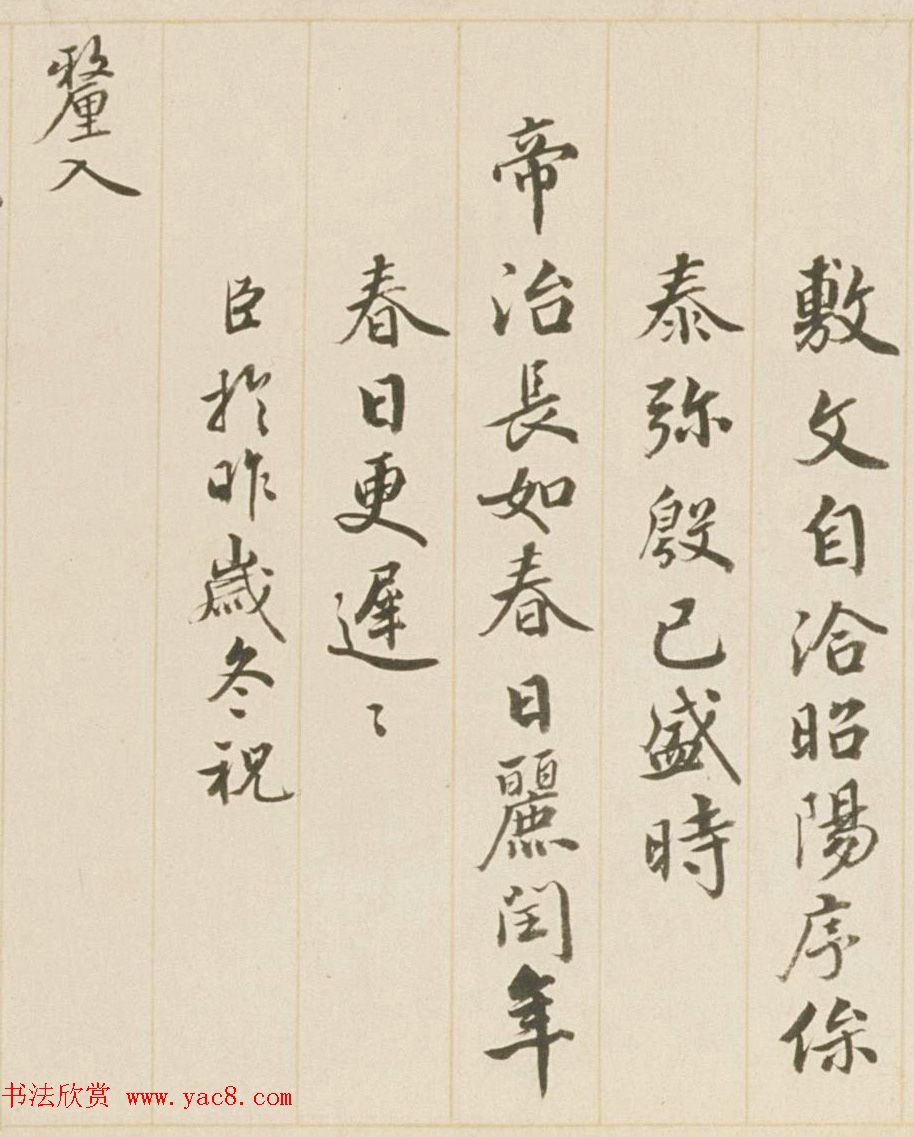 敷文自洽昭陽序保
泰弥殷已盛時
帝治長如春日麗閏年
春日更遲〻
臣於昨歲冬祝
釐入
书法欣赏 www.yac8.com